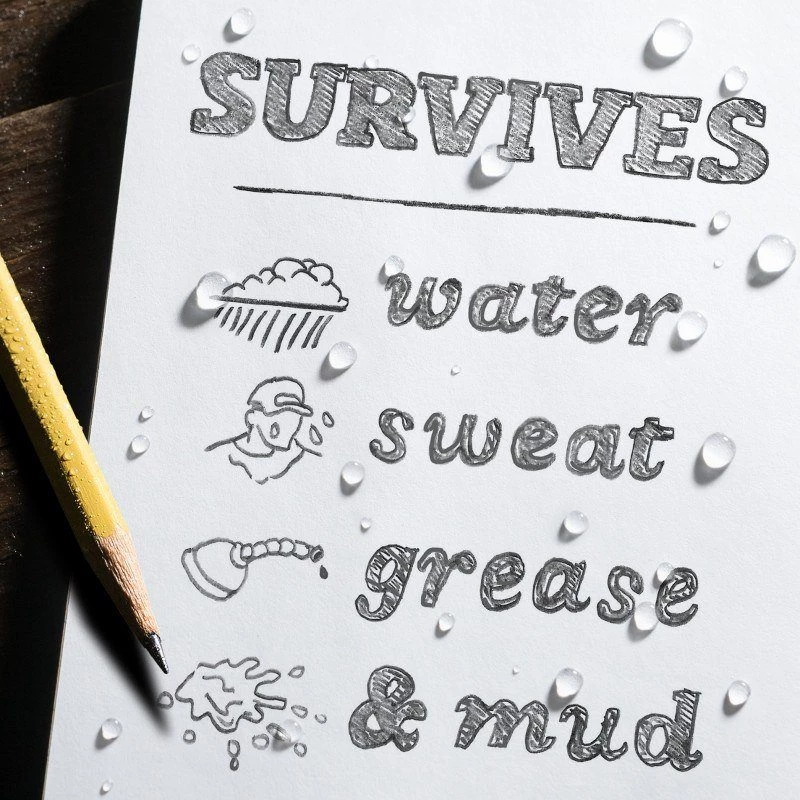 SURVIVES
water
sweat
grease
& mud